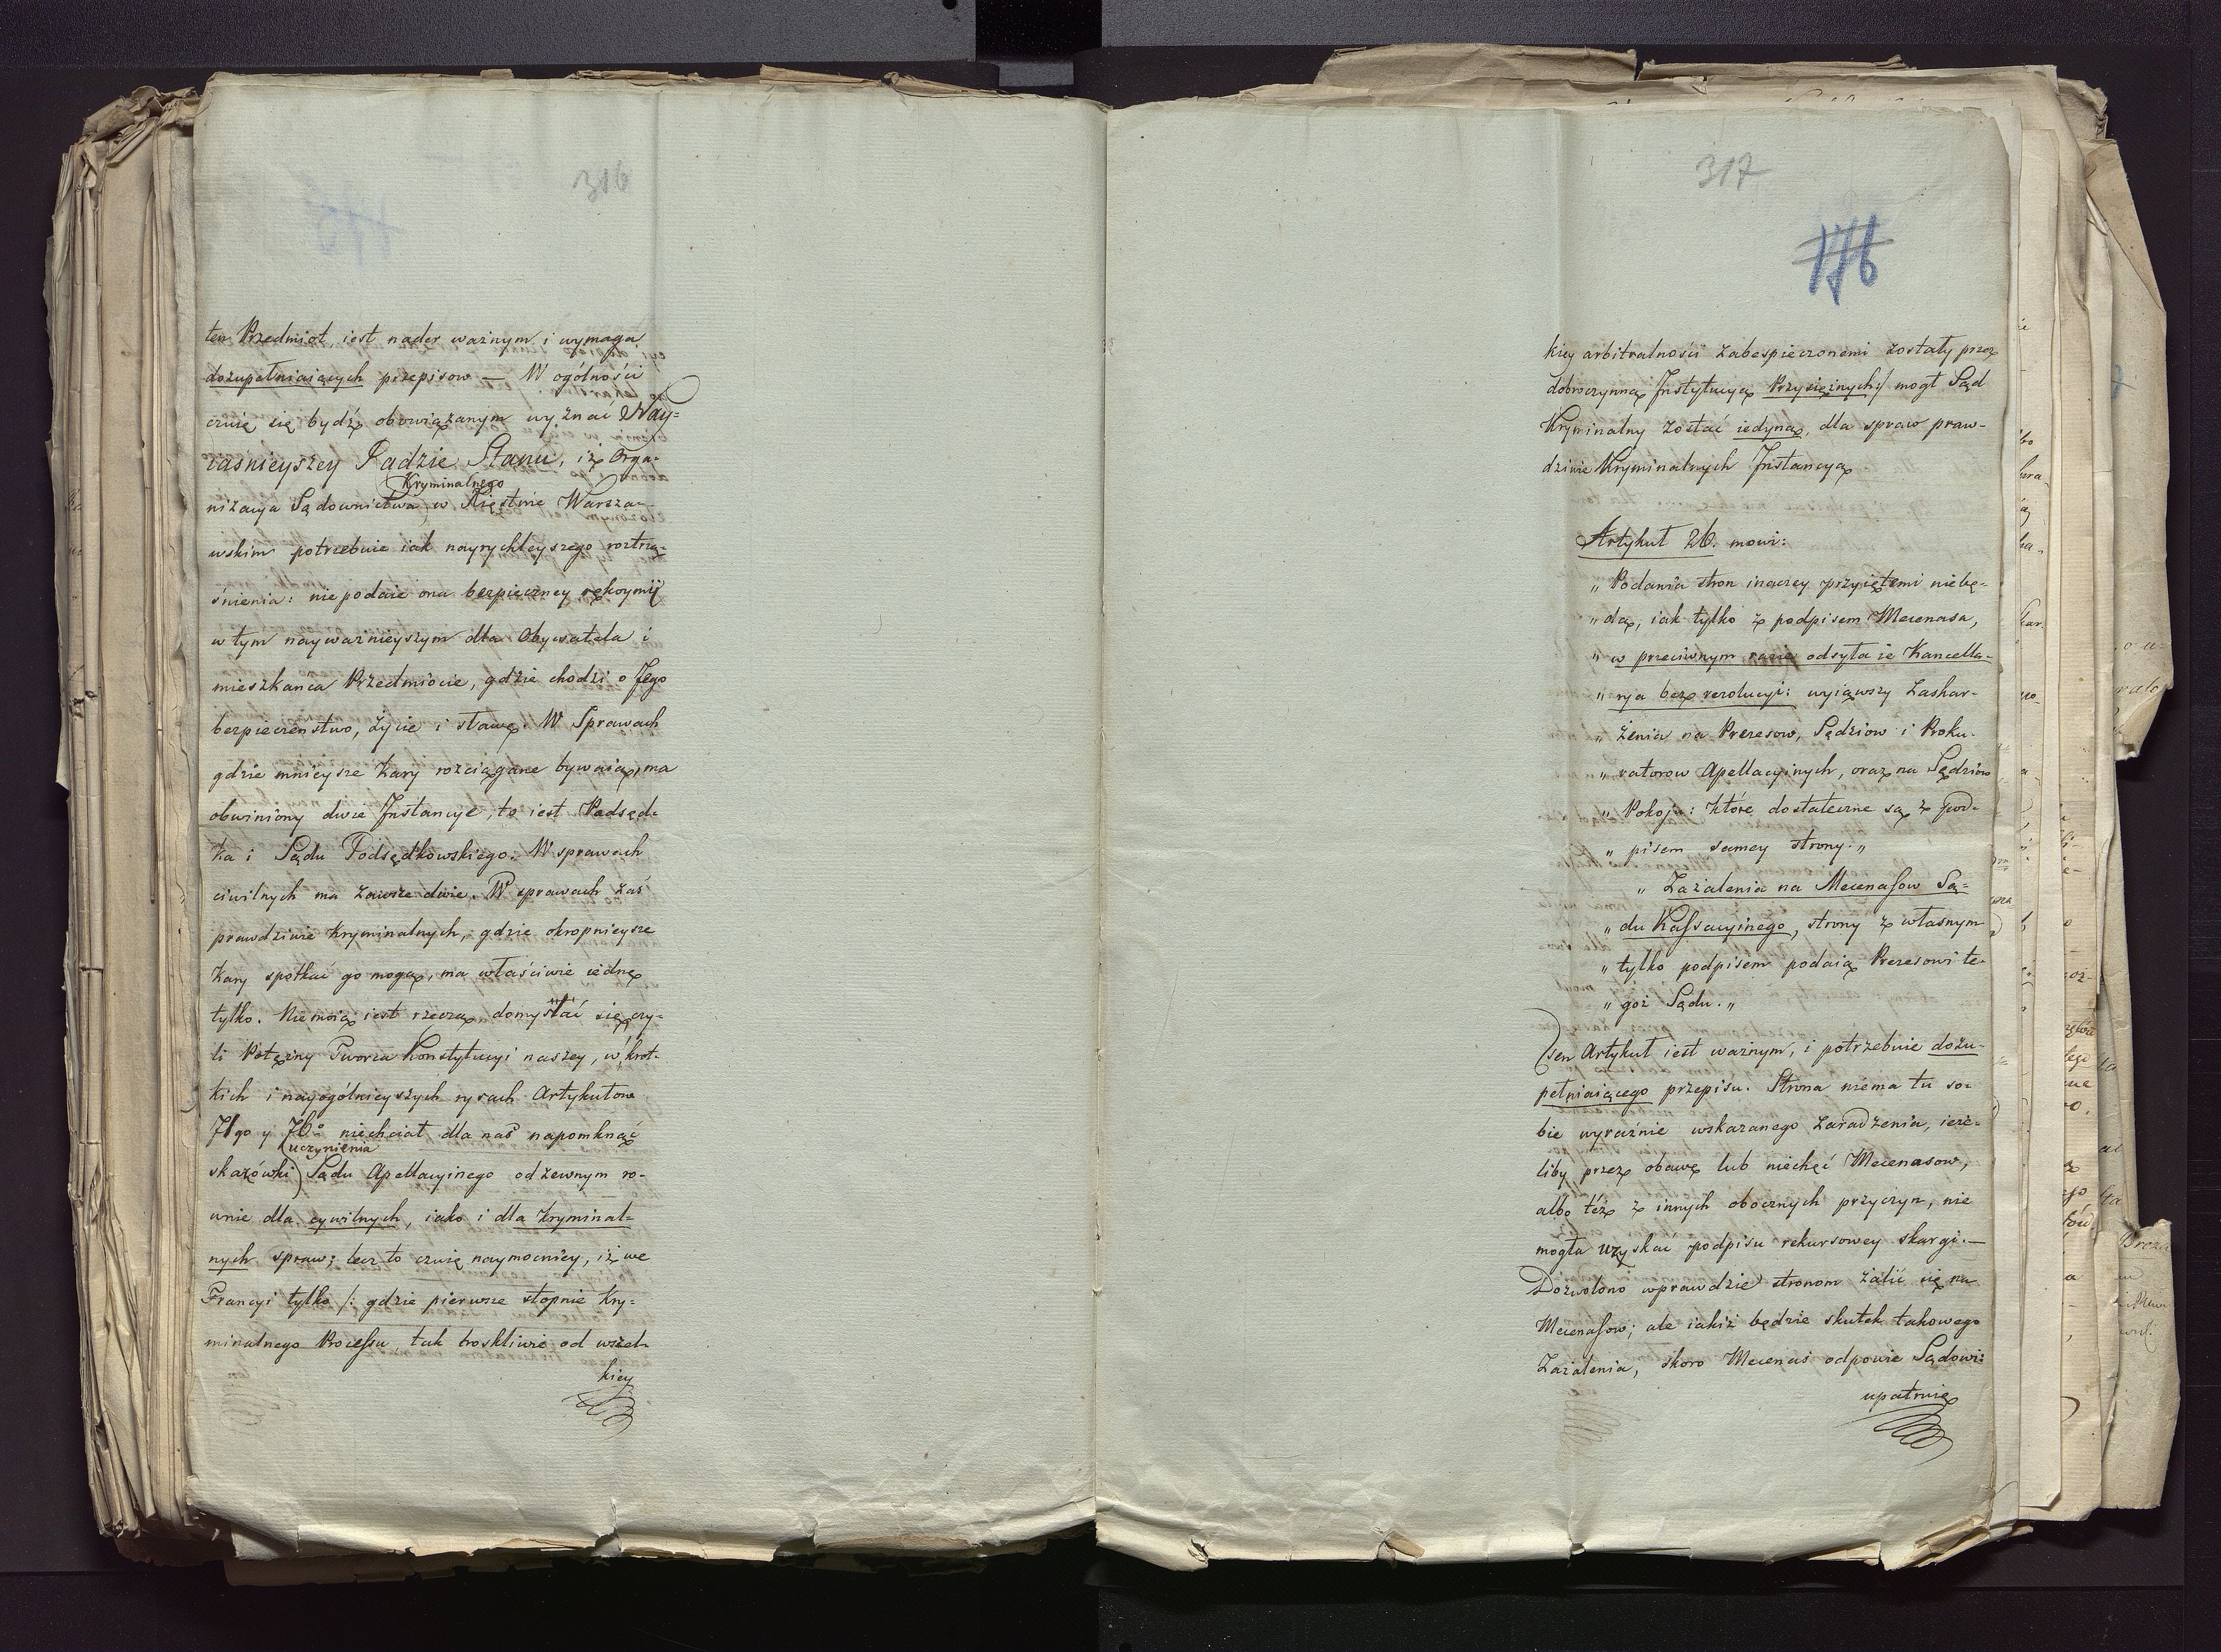 316
ten Przedmiot, iest nader ważnym i wymaga
dozupełniaiących przepisow — W ogólności
czuię się bydź obowiązanym wyznać Nay=
iaśnieyszey Radzie Stanu, iż Orga-
Kryminalnego
nizacya Sądownictwa w Xięstwie Warsza-
wskim potrzebuie iak nayrychleyszego roztrzą-
śnienia: nie podaie ona bezpieczney rękoymij
w tym naywaznieyszym dla Obywatela i
mieszkanca Przedmiocie, gdzie chodzi o Jego
bezpieczeństwo, życie i sławę. W Sprawach
gdzie mnieysze kary rozciągane bywaią, ma
obwiniony dwie Instancye, to iest Podsęd-
ka i Sądu Podsędkowskiego. W sprawach
ciwilnych ma zawsze dwie. W sprawach zaś
prawdziwie kryminalnych, gdzie okropnieysze
kary spotkać go mogą, ma właściwie iednę
tylko. Nie moią iest rzeczą domyślać się, czy-
li Potężny Tworca Konstytucyi naszey, w krot-
kich i nayogólnieyszych rysach Artykułow
71go y 76o niechciał dla nas napomknąć
uczynienia
skazówki) Sądu Apellacyinego odzewnym ro-
wnie dla cywilnych, iako i dla kryminal=
nych spraw; lecz to czuię naymocniey, iż we
Francyi tylko /: gdzie pierwsze stopnie kry=
minalnego Processu tak troskliwie od wszel-
kiey
317
176
kiey arbitralności zabespieczonemi zostały przez
dobroczynną Instytucyą Przysięznych:/ mogł Sąd
Kryminalny zostać iedyną, dla spraw praw-
dziwie Kryminalnych Instancyą
Artykuł 26. mowi:
„ Podania stron inaczey przyiętemi niebę-
„ dą, iak tylko z podpisem Mecenasa,
„ w przeciwnym razie odsyła ie Kancella-
„ rya bez rezolucyi: wyiąwszy Zaskar-
„ żenia na Prezesow, Sędziow i Proku-
„ ratorow Apellacyinych, oraz na Sędziow
„ Pokoju: które dostateczne są z pod-
„ pisem samey strony. „
„ Zażalenia na Mecenasow Są=
„ du Kassacyinego, strony z własnym
„ tylko podpisem podaią Prezesowi te-
„ goż Sądu. „
Ten Artykuł iest ważnym, i potrzebuie dozu-
pełniaiącego przepisu. Strona niema tu so-
bie wyraźnie wskazanego zaradzenia, ieże-
liby przez obawę lub niechęć Mecenasow,
albo też z innych obocznych przyczyn, nie
mogła uzyskać podpisu rekursowey skargi. —
Dozwolono wprawdzie stronom żalić się na
Mecenasow; ale iakiż będzie skutek takowego
Zażalenia, skoro Mecenas odpowie Sądowi:
upatruię